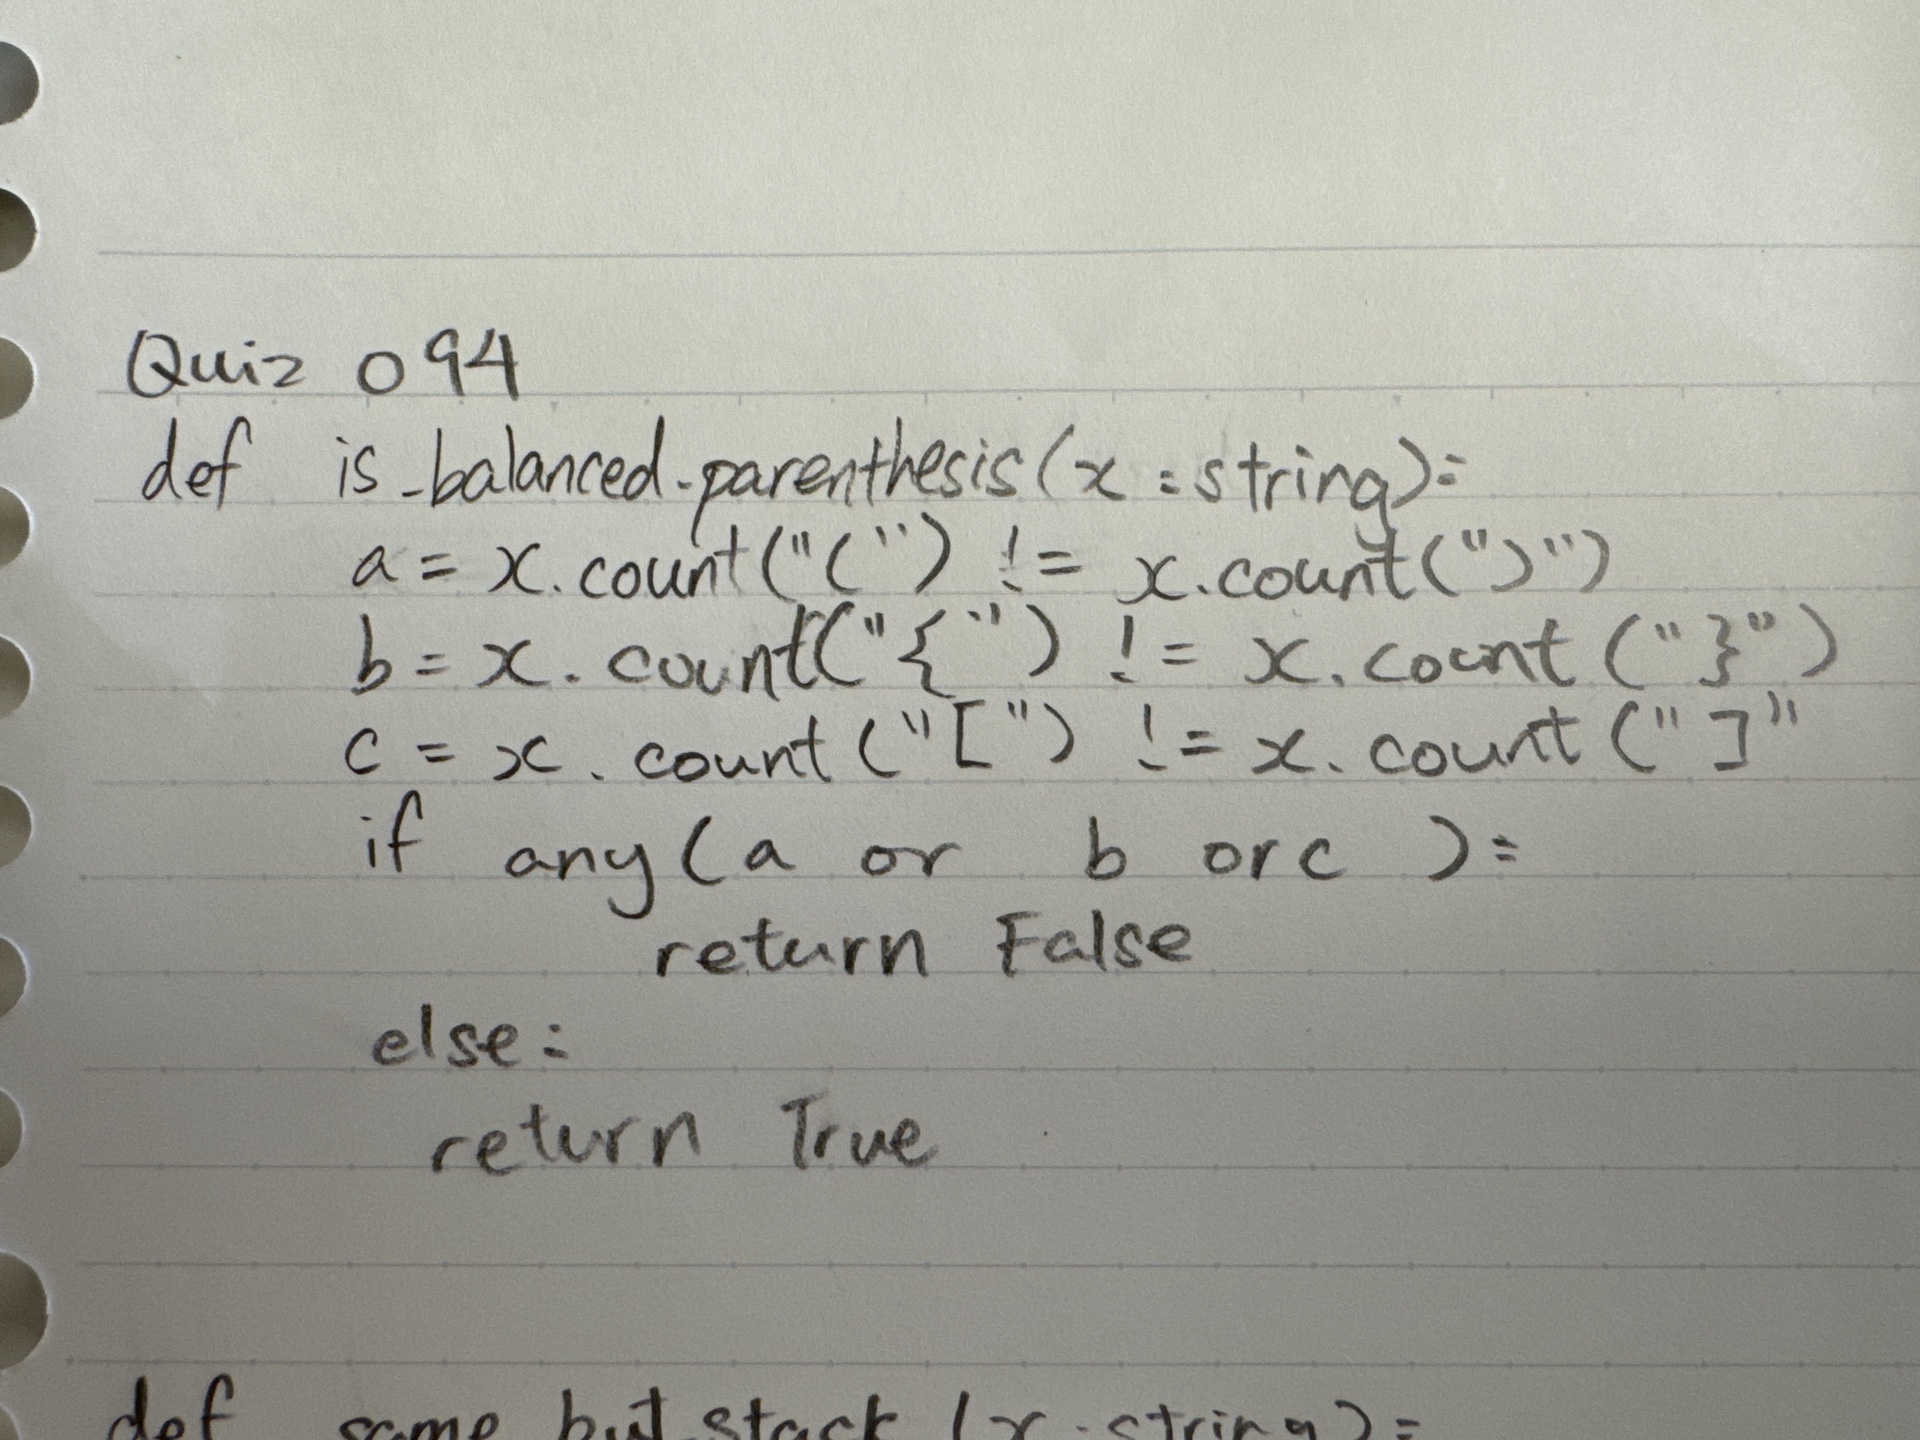 Quiz 094
def is_balanced_parenthesis(x:string):
a = x.count("(") != x.count(")")
b = x.count("{") != x.count("}")
c = x.count("[") != x.count("]"
if any(a or b or c ):
return False
else:
return True
def same but_stack (x:string):